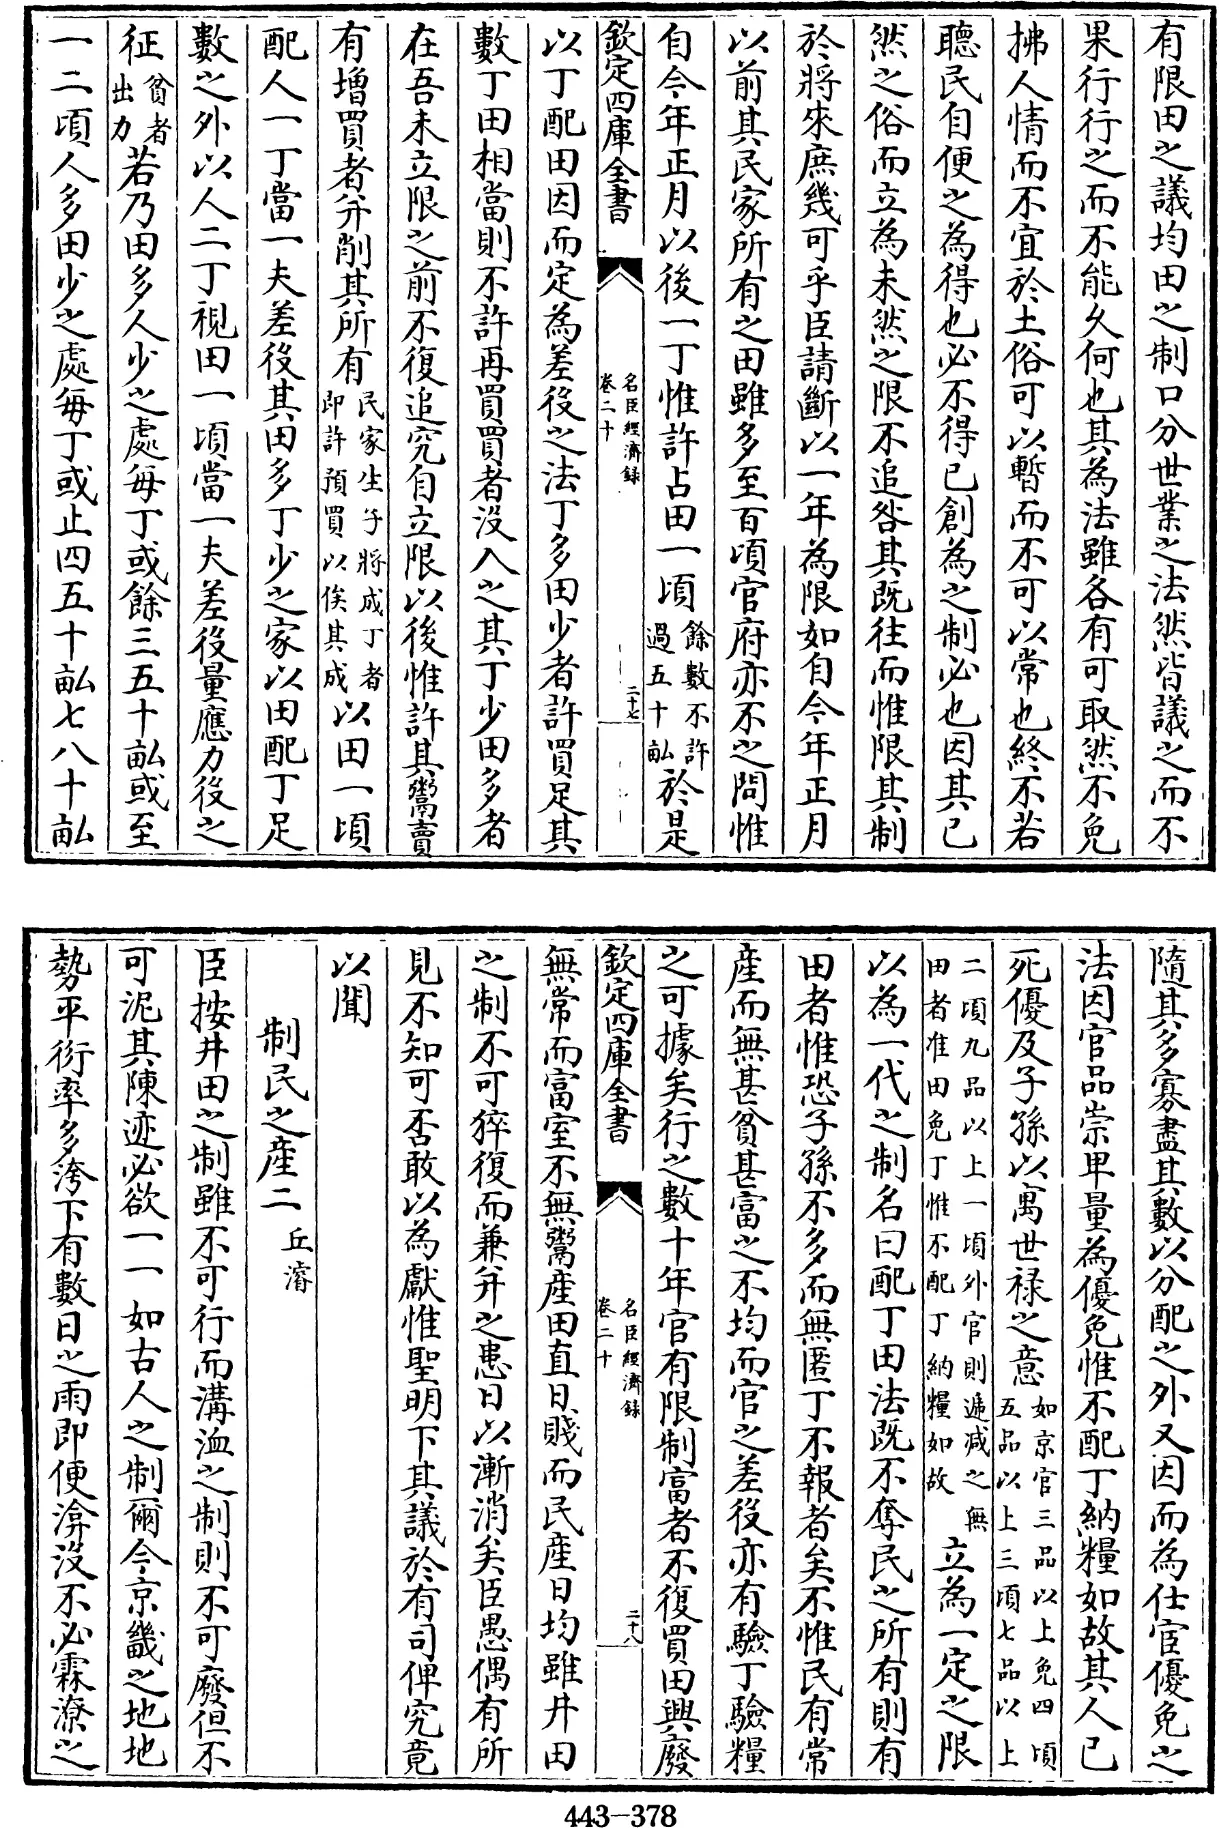 有限田之議均田之制口分世業之法然皆議之而不
果行行之而不能久何也其為法雖各有可取然不免
拂人情而不宜於土俗可以暫而不可以常也終不若
聽民自便之為得也必不得已創為之制必也因其已
然之俗而立為未然之限不追咎其既往而惟限其制
於將來庶幾可乎臣請斷以一年為限如自今年正月
以前其民家所有之田雖多至百頃官府亦不之問惟
自今年正月以後一丁惟許占田一頃餘數不許過五十畝於是
欽定四庫全書 名臣經濟錄 卷二十 二十七
以丁配田因而定為差役之法丁多田少者許買足其
數丁田相當則不許再買買者沒入之其丁少田多者
在吾未立限之前不復追究自立限以後惟許其鬻賣
有增買者并削其所有民家生子將成丁者即許預買以俟其成以田一頃
配人一丁當一夫差役其田多丁少之家以田配丁足
數之外以人二丁視田一頃當一夫差役量應力役之
征貧者出力若乃田多人少之處每丁或餘三五十畝或至
一二頃人多田少之處每丁或止四五十畝七八十畝
隨其多寡盡其數以分配之外又因而為仕宦優免之
法因官品崇卑量為優免惟不配丁納糧如故其人已
死優及子孫以寓世禄之意如京官三品以上免四頃五品以上三頃七品以上
二頃九品以上一頃外官則遞减之無田者准田免丁惟不配丁納糧如故立為一定之限
以為一代之制名曰配丁田法既不奪民之所有則有
田者惟恐子孫不多而無匿丁不報者矣不惟民有常
産而無甚貧甚富之不均而官之差役亦有驗丁驗糧
之可據矣行之數十年官有限制富者不復買田興廢
欽定四庫全書 名臣經濟錄 卷二十 二十八
無常而富室不無鬻產田直日賤而民產日均雖井田
之制不可猝復而兼并之患日以漸消矣臣愚偶有所
見不知可否敢以為獻惟聖明下其議於有司俾究竟
以聞
制民之産二 丘濬
臣按井田之制雖不可行而溝洫之制則不可廢但不
可泥其陳迹必欲一一如古人之制爾今京畿之地地
勢平衍率多洿下有數日之雨即便渰沒不必霖潦之
443-378